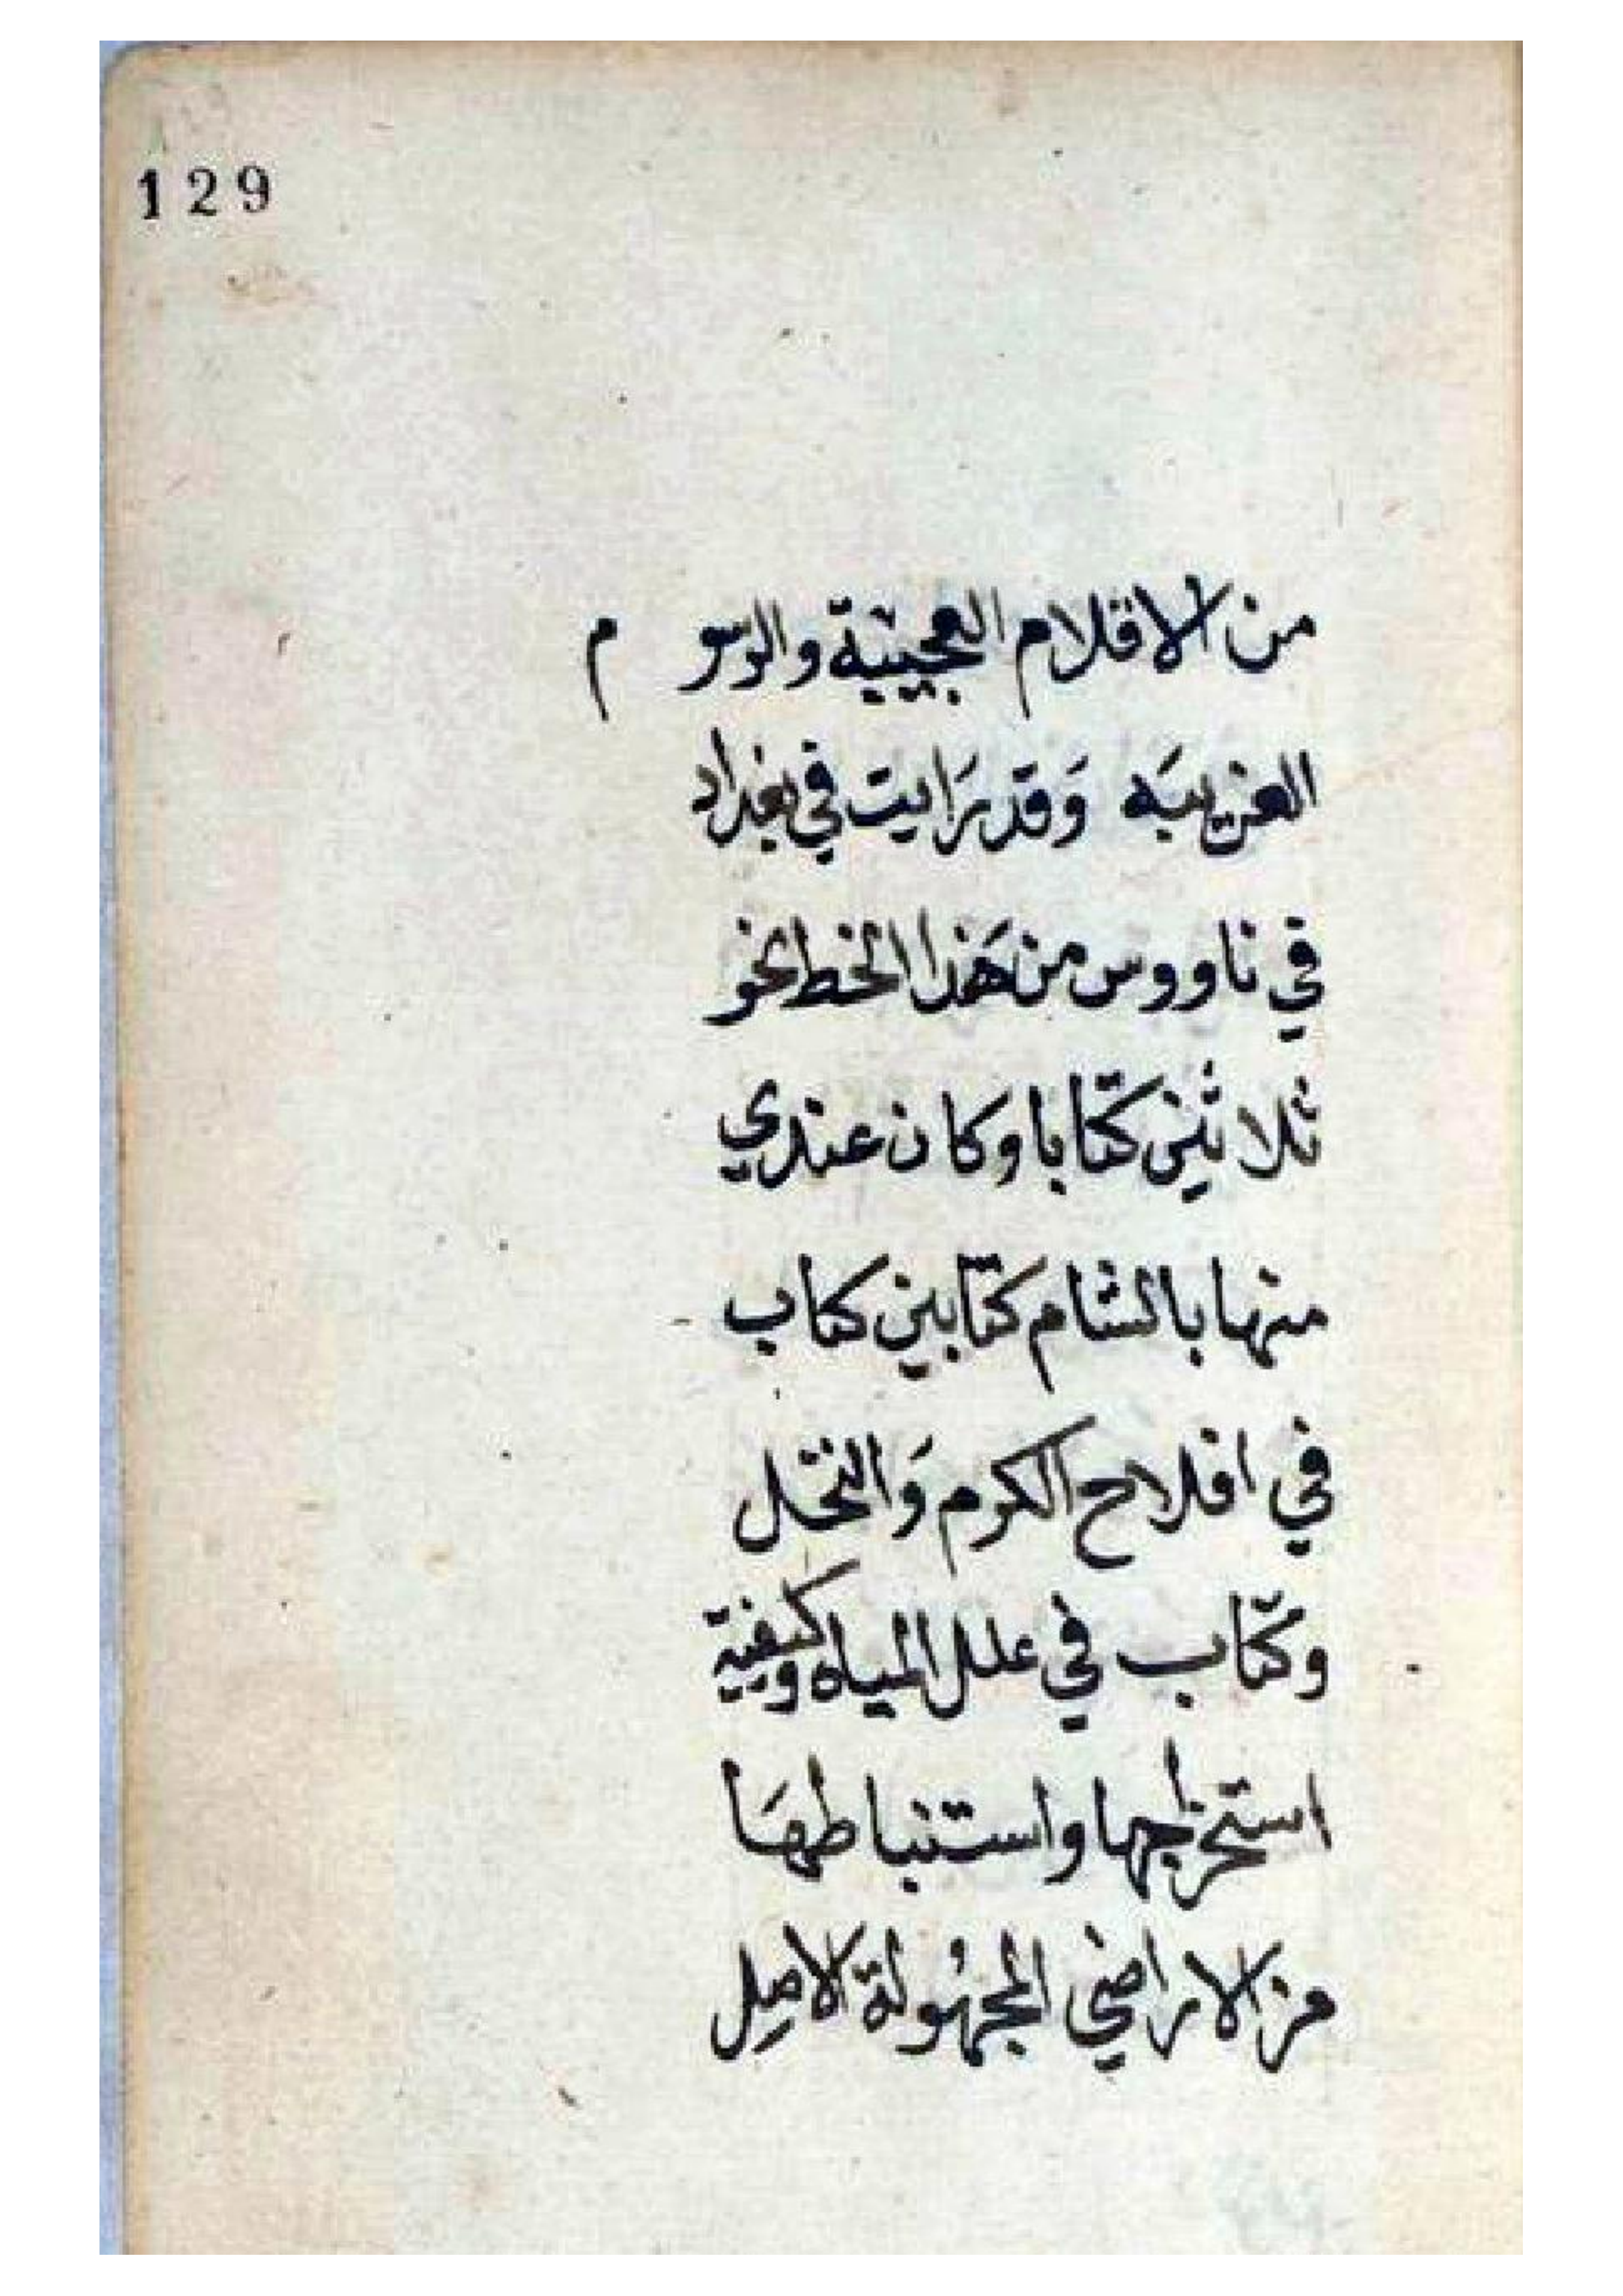 129
من الاقلام العجيبية والرسوم
الغريبَه وَقد رَايت في بغداد
في ناووس من هَذا الخط نحو
ثلاثين كتابا وكان عندي
منها بالشام كتابين كتاب
في افلاح الكرم وَالنخل
وكتاب في علل المياه وكيفية
استخراجها واستنباطهَا
من الاراضي المجهُولة الاصِل